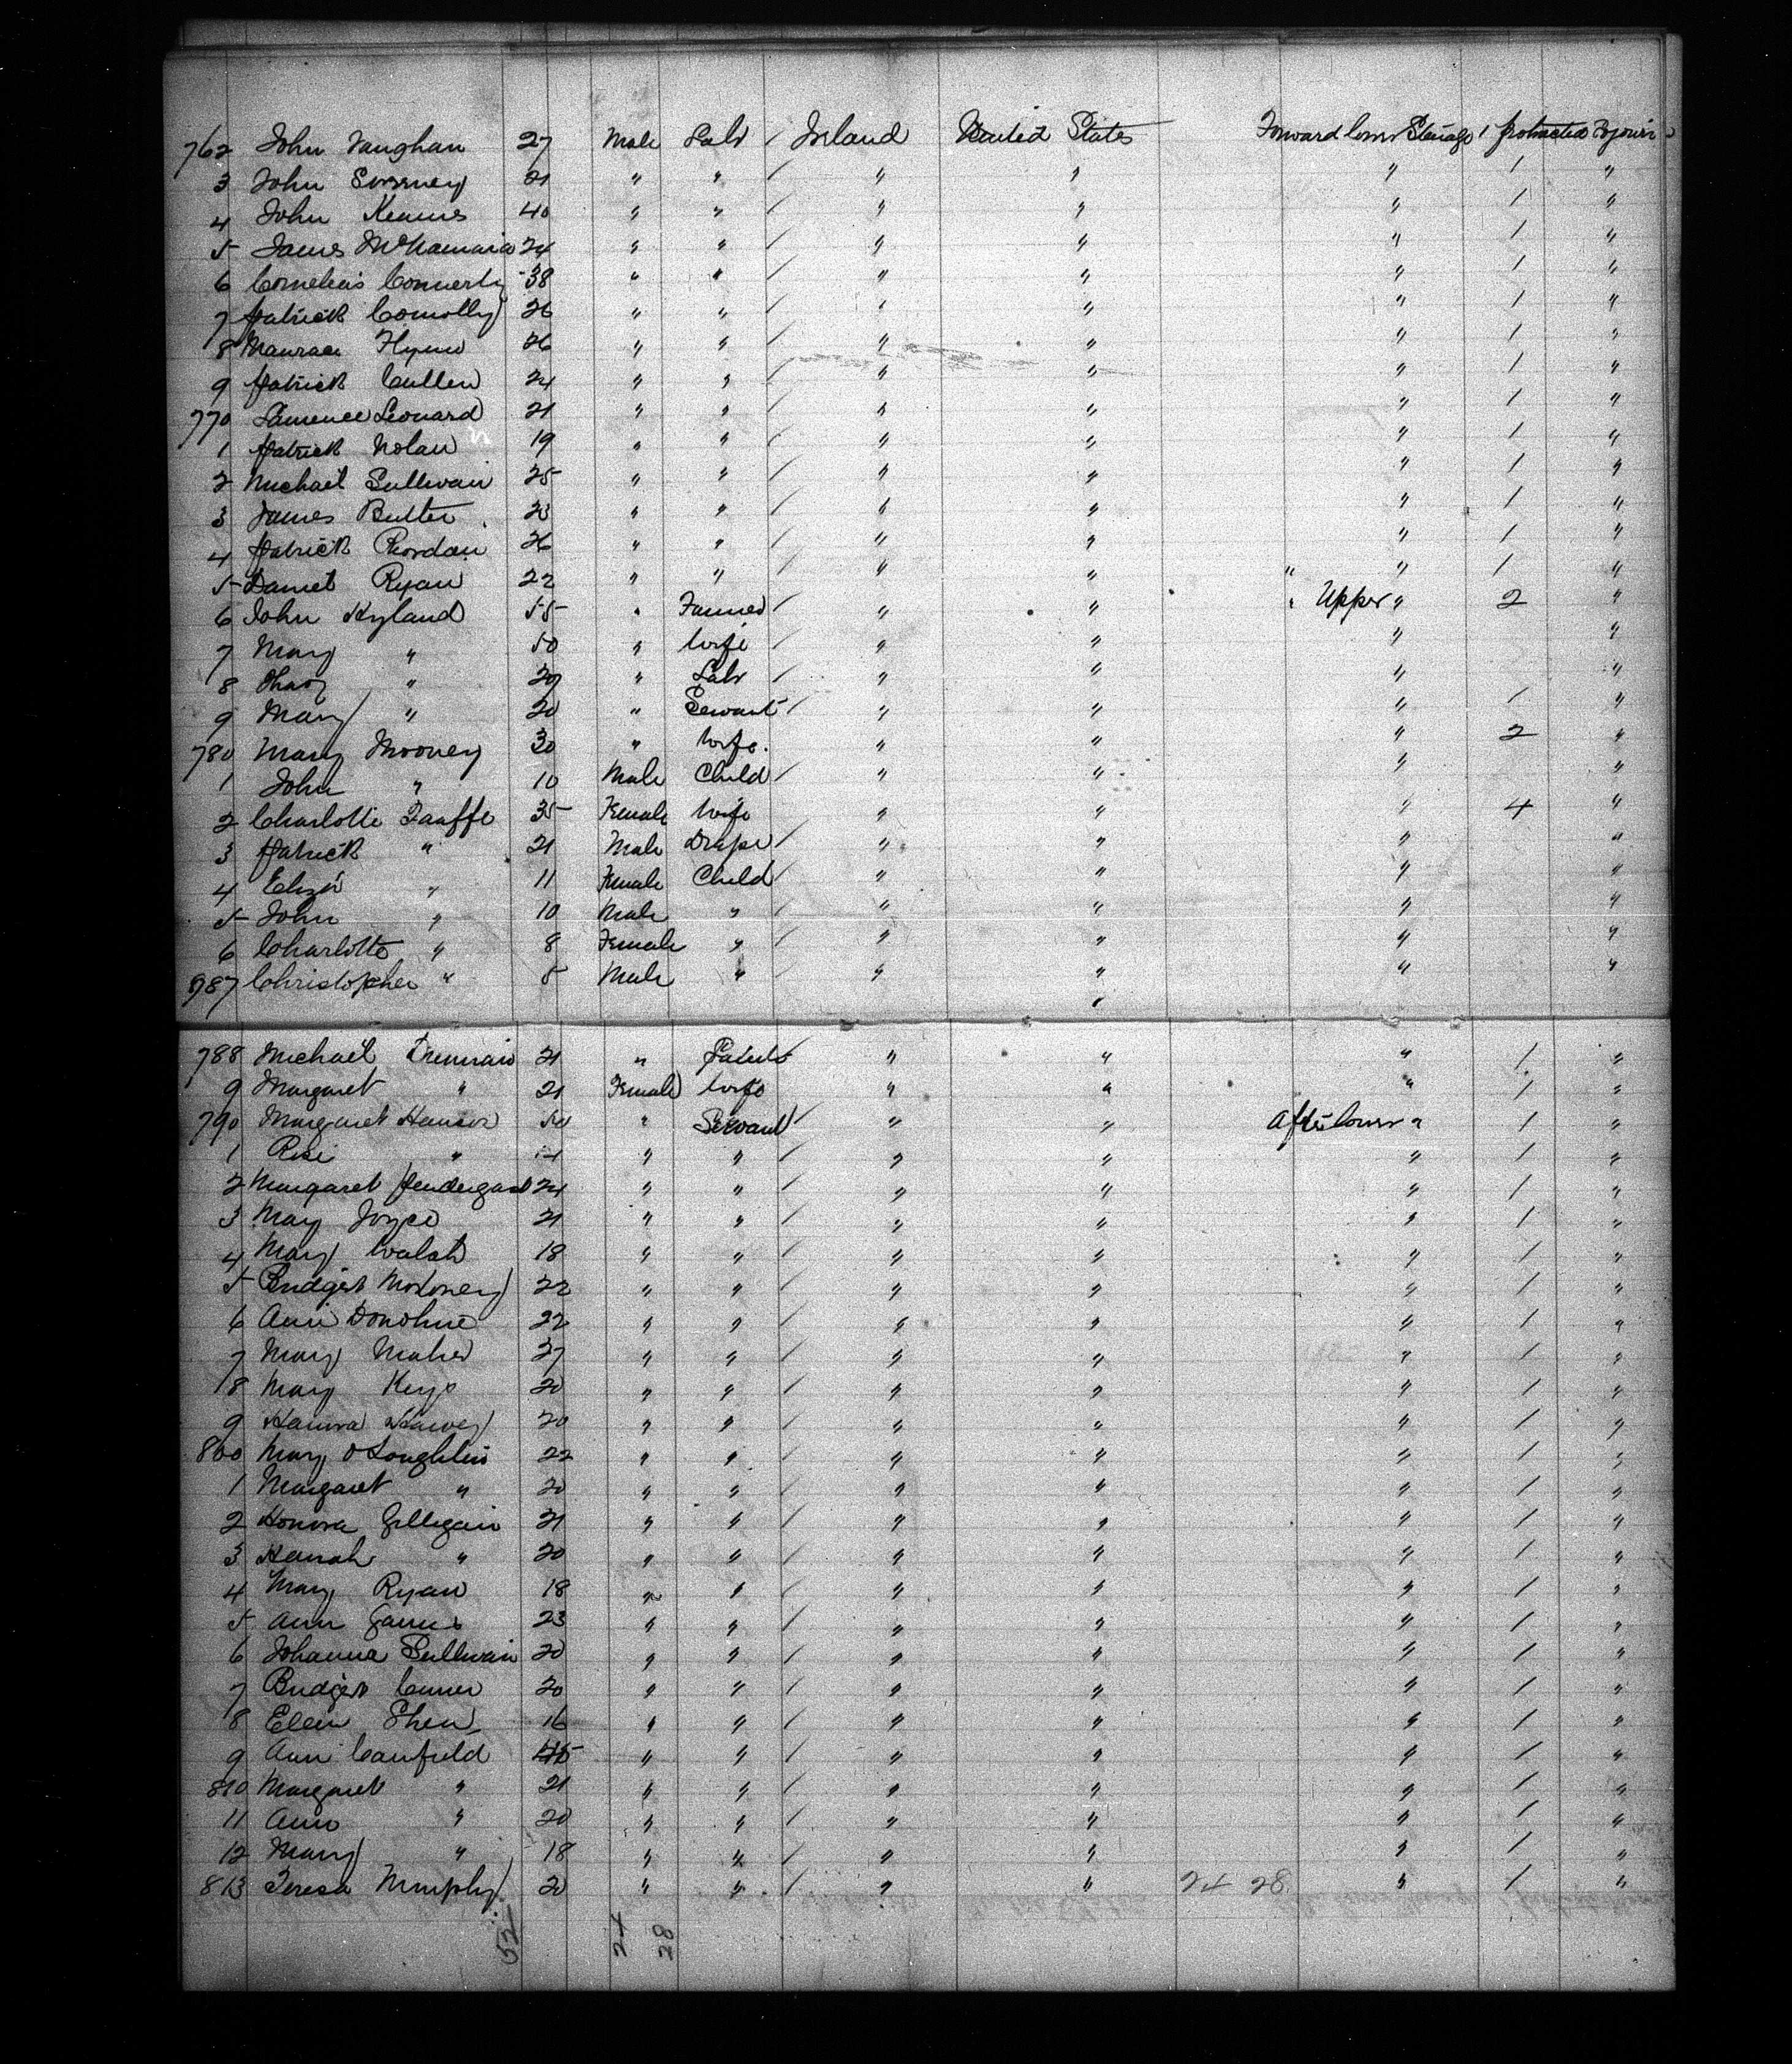 762 John Vaughan 27 Male Labr / Ireland United States Forward lower Steerage 1 protracted Sojourn
3 John Sweeney 21 " " / " " " 1 "
4 John Kearns 40 " " / " " " 1 "
5 James McNamara 24 " " / " " " 1 "
6 Cornelius Connerty 38 " " / " " " 1 "
7 Patrick Connolly 26 " " / " " " 1 "
8 Maurace Flynn 26 " " / " " " 1 "
9 Patrick Cullen 24 " " / " " " 1 "
770 Laurence Leonard 21 " " / " " " 1 "
1 Patrick Nolan 19 " " / " " " 1 "
2 Michael Sullivan 25 " " / " " " 1 "
3 James Butler 23 " " / " " " 1 "
4 Patrick Riordan 26 " " / " " " 1 "
5 Daniel Ryan 22 " " / " " " " 1 "
6 John Hyland 55 " Farmer / " " " Upper " 2 "
7 Mary " 50 " Wife / " " " "
8 " 29 " Labr / " " " "
9 Mary " 20 " Servant / " " " 1 "
780 Mary Mooney 30 " Wife " " " 2 "
1 John " 10 Male Child / " " " "
2 Charlotte Taaffe 35 Female Wife " " " 4 "
3 Patrick " 21 Male Drape / " " " "
4 Eliza " 11 Female Child / " " " "
5 John " 10 Male " / " " " "
6 Charlotte " 8 Female " / " " " "
987 Christopher " 5 Male " / " " " "
788 Michael 21 " " " " 1 "
9 Margaret " 21 Female Wife " " " 1 "
790 Margaret 50 " Servant / " " After lower " 1 "
1 Rose " " " / " " " 1 "
2 Margaret Pendergast 24 " " / " " " 1 "
3 Mary Joyce 21 " " / " " " 1 "
4 Mary Walsh 18 " " / " " " 1 "
5 Bridget Moloney 22 " " / " " " 1 "
6 Ann Donohue 22 " " / " " " 1 "
7 Mary Maher 27 " " / " " " 1 "
8 Mary Keys 20 " " / " " " 1 "
9 Hanora 20 " " / " " " 1 "
800 Mary O Loughlin 22 " " / " " " 1 "
1 Margaret " 20 " " / " " " 1 "
2 Honora Gilligan 21 " " / " " " 1 "
3 Hanah " 20 " " / " " " 1 "
4 Mary Ryan 18 " " / " " " 1 "
5 Ann 23 " " / " " " 1 "
6 Johanna Sullivan 20 " " / " " " 1 "
7 Bridget 20 " " / " " " 1 "
8 Ellen Shea 16 " " / " " " 1 "
9 Ann Canfield 45 " " / " " " 1 "
810 Margaret " 21 " " / " " " 1 "
11 Ann " 20 " " / " " " 1 "
12 Mary " 18 " " / " " " 1 "
813 Teresa Murphy 20 " " / " " 24 28 " 1 "
52 24 28